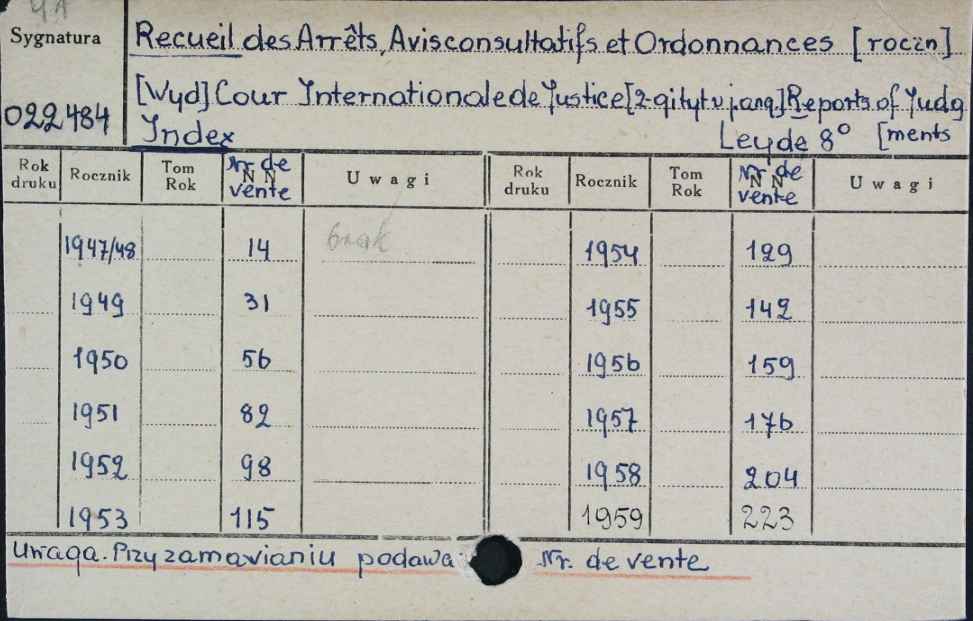 4A
Sygnatura
Recueil des Arrêts, Avis consultatifs et Ordonnances [roczn]
022484
[Wyd] Cour Internationale de Justice [2-gi tyt w j. ang.] Reports of Judg
Index Leyde 8° [ments
Rok druku Rocznik Tom Rok Nr. de vente N N Uwagi Rok druku Rocznik Tom Rok Nr. de vente N N Uwagi
1947/48 14 brak 1954 129
1949 31 1955 142
1950 56 1956 159
1951 82 1957 176
1952 98 1958 204
1953 115 1959 223
Uwaga. Przy zamawianiu podawa Nr. de vente